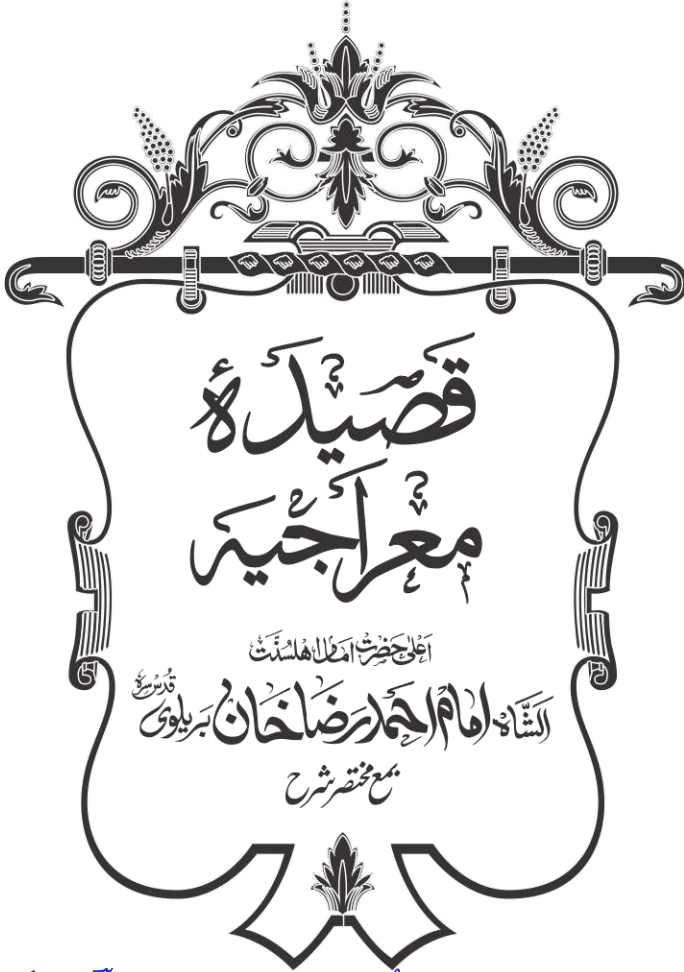 قصیدۂ
معراجیہ
اعلیٰ حضرت امام اہلسنّت
الشّاہ امام احمد رضا خان بریلوی قدس سرہٗ
بمع مختصر شرح